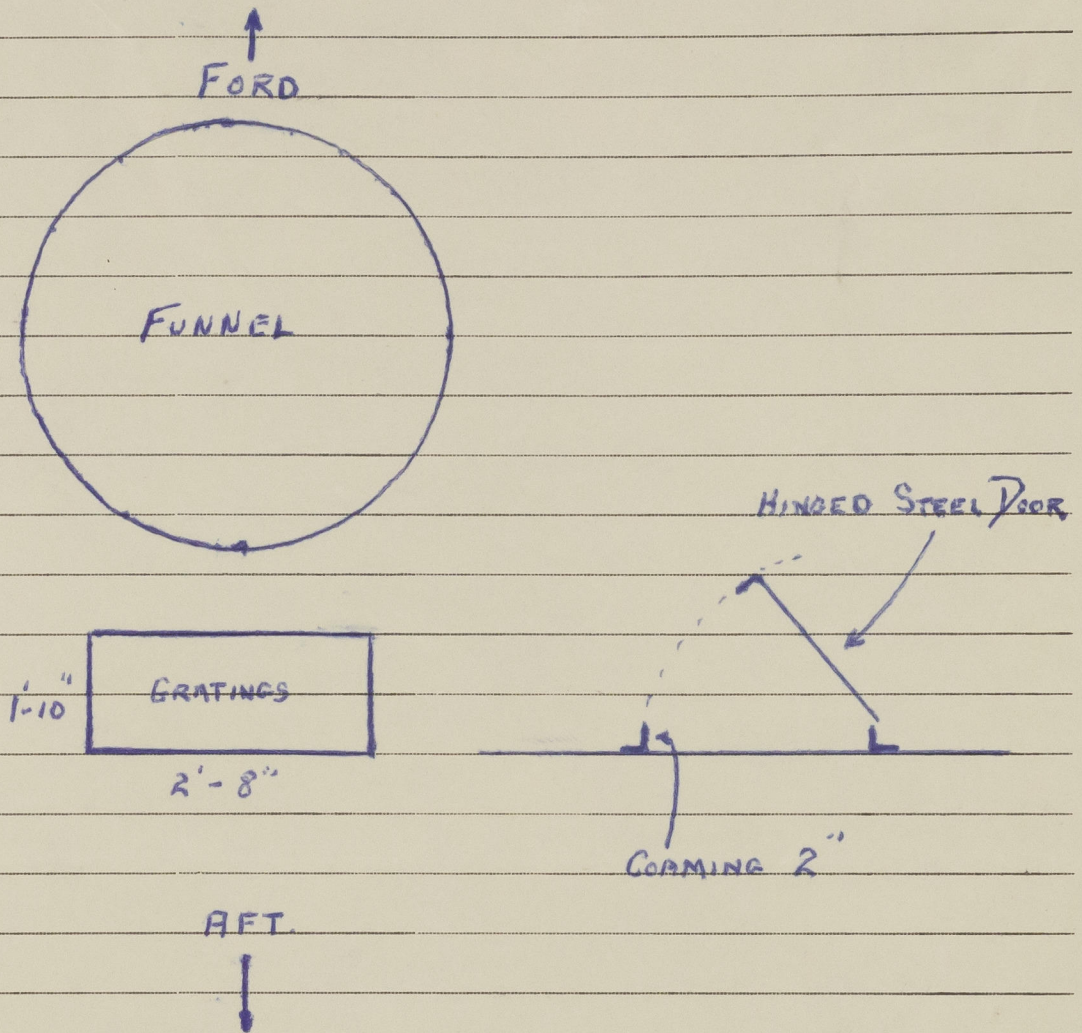 FORD
FUNNEL
HINGED STEEL DOOR
GRATINGS
1'-10"
2'-8"
COAMING 2"
AFT.